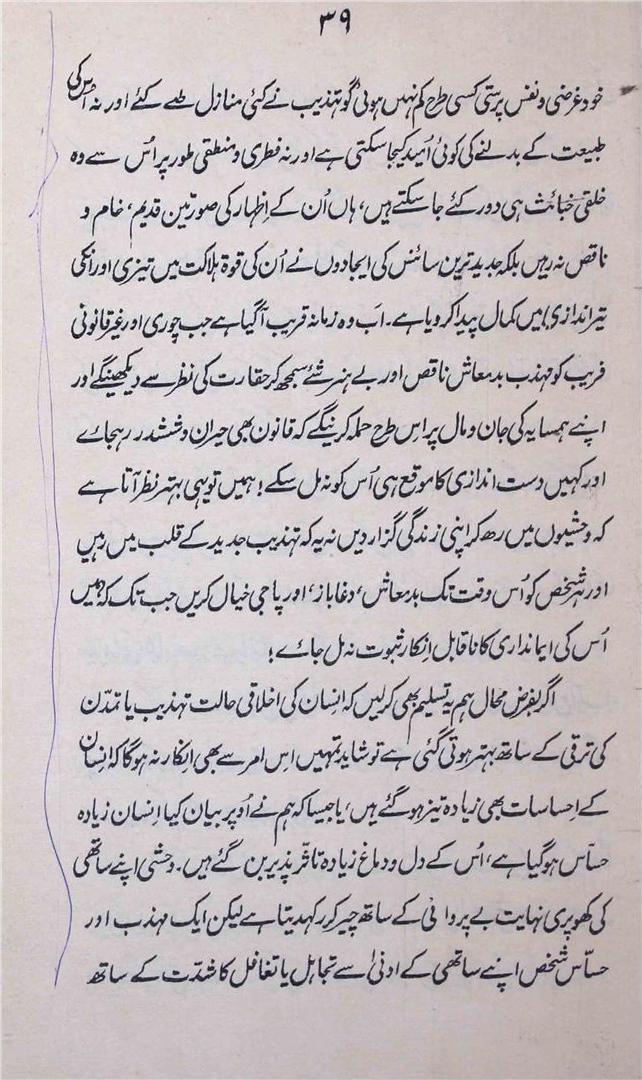 ۳۹
خودغرضی و نفس پرستی کسی طرح کم نہیں ہوئی گو تہذیب نے کئی منازل طے کئے اور نہ اُس کی
طبیعت کے بدلنے کی کوئی اُمید کیجاسکتی ہے اور نہ فطری و منطقی طور پر اُس سے وہ
خلقی خبائث ہی دور کئے جا سکتے ہیں، ہاں اُن کے اِظہار کی صورتیں قدیم، خام و
ناقص نہ رہیں بلکہ جدید ترین سائنس کی ایجادوں نے اُن کی قوۃ ہلاکت میں تیزی اور انکی
تیر اندازی میں کمال پیدا کر دیا ہے۔ اب وہ زمانہ قریب آگیا ہے جب چوری اور غیر قانونی
فریب کو مہذب بدمعاش ناقص اور بے ہنر شئے سمجھ کر حقارت کی نظر سے دیکھینگے اور
اپنے ہمسایہ کی جان و مال پر اِس طرح حملہ کرینگے کہ قانون بھی حیران و ششدر رہجائے
اور کہیں دست اندازی کا موقع ہی اُس کو نہ مل سکے! ہمیں تو یہی بہتر نظر آتا ہے
کہ وحشیوں میں رھ کر اپنی زندگی گزار دیں نہ یہ کہ تہذیب جدید کے قلب میں رہیں
اور ہر شخص کو اُس وقت تک بدمعاش، دغاباز، اور پاجی خیال کریں جب تک کہ ہمیں
اُس کی ایمانداری کا ناقابل اِنکار ثبوت نہ مل جائے!
اگر بفرض محال ہم یہ تسلیم بھی کرلیں کہ اِنسان کی اخلاقی حالت تہذیب یا تمدّن
کی ترقی کے ساتھ بہتر ہوتی گئی ہے تو شاید تمہیں اِس امر سے بھی اِنکار نہ ہوگا کہ اِنسان
کے اِحساسات بھی زیادہ تیز ہو گئے ہیں، یا جیسا کہ ہم نے اُوپر بیان کیا اِنسان زیادہ
حسّاس ہوگیا ہے، اُس کے دل و دماغ زیادہ تاثّر پذیر بن گئے ہیں۔ وحشی اپنے ساتھی
کی کھوپری نہایت بے پروائی کے ساتھ چیر کر رکھدیتا ہے لیکن ایک مہذب اور
حسّاس شخص اپنے ساتھی کے ادنیٰ سے تجاہل یا تغافل کا شدّت کے ساتھ